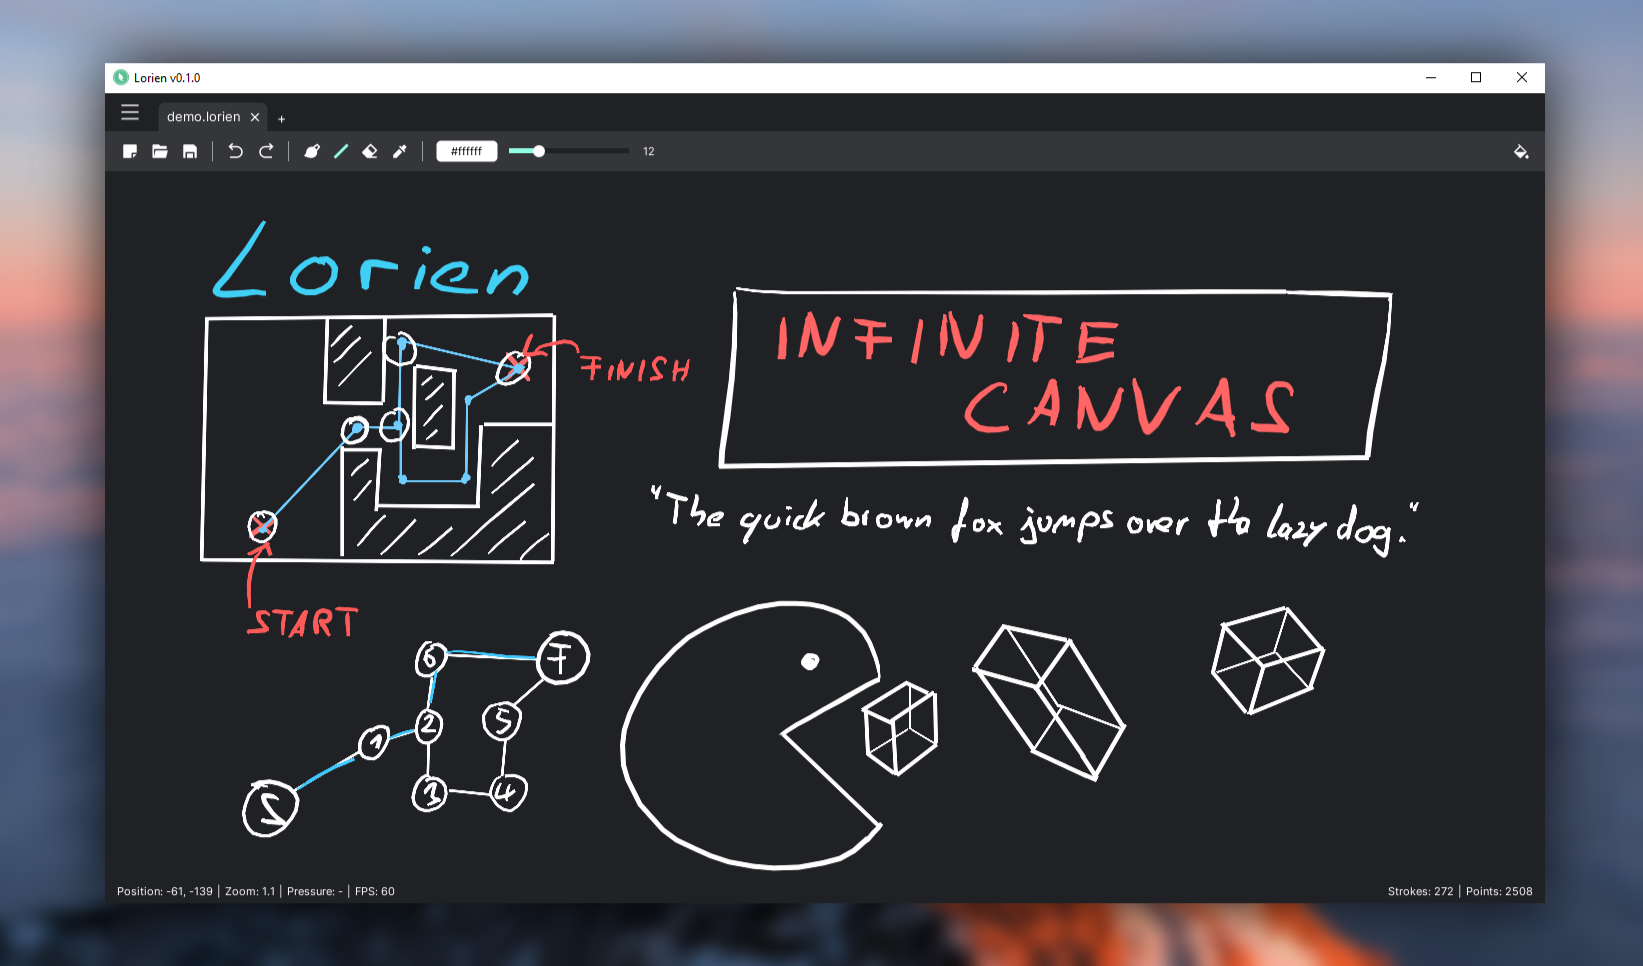 Lorien v0.1.0
demo.lorien
#ffffff
12
Lorien
FINISH
START
INFINITE
CANVAS
"The quick brown fox jumps over the lazy dog."
6
F
2
5
1
3
4
S
Position: -61, -139 | Zoom: 1.1 | Pressure: - | FPS: 60
Strokes: 272 | Points: 2508